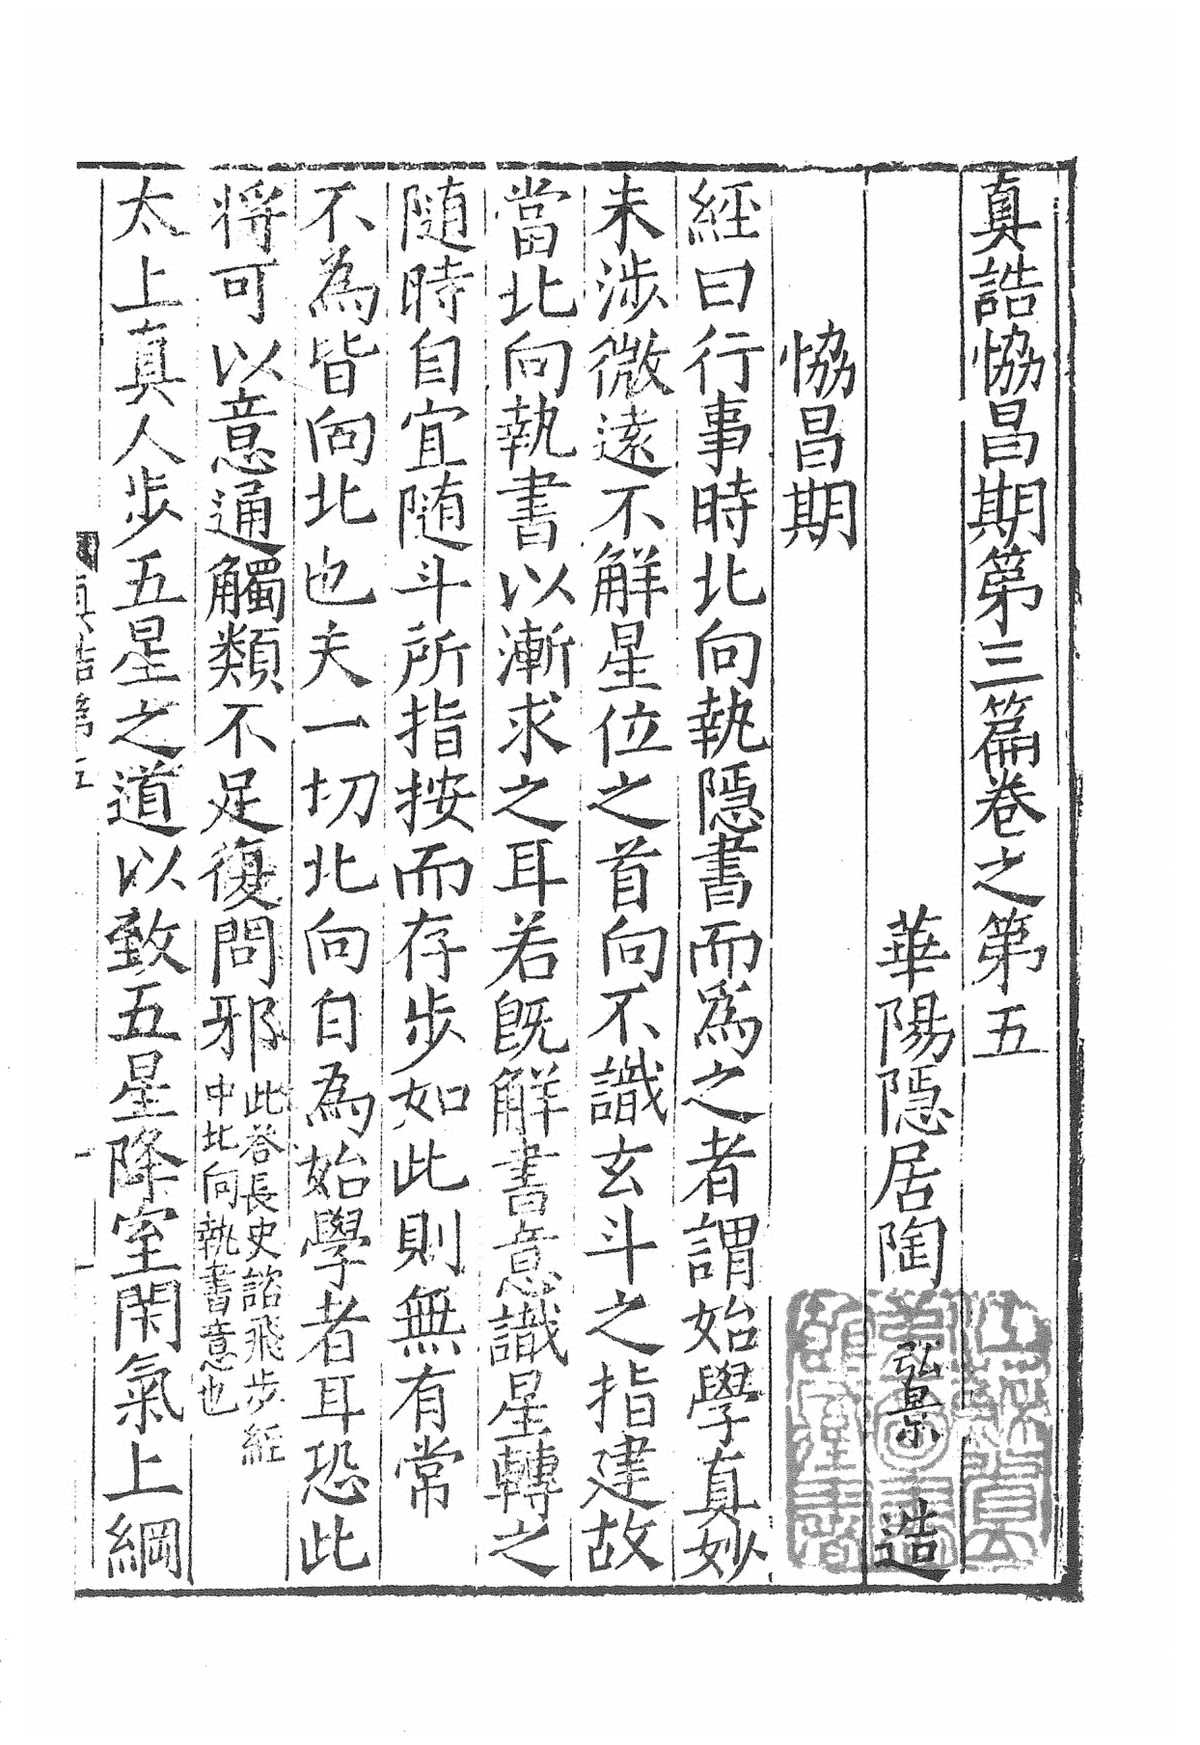 真誥恊昌期第三篇卷之第五
華陽隱居陶弘景造
恊昌期
經曰行事時北向執隱書而爲之者謂始學真妙
未涉微遠不解星位之首向不識玄斗之指建故
當北向執書以漸求之耳若旣解書意識星轉之
隨時自宜隨斗所指按而存步如此則無有常
不為皆向北也夫一切北向自為始學者耳恐此
將可以意通觸類不足復問邪此答長史諮飛步經
中北向執書意也
太上真人步五星之道以致五星降室閑氣上綱
真誥第五